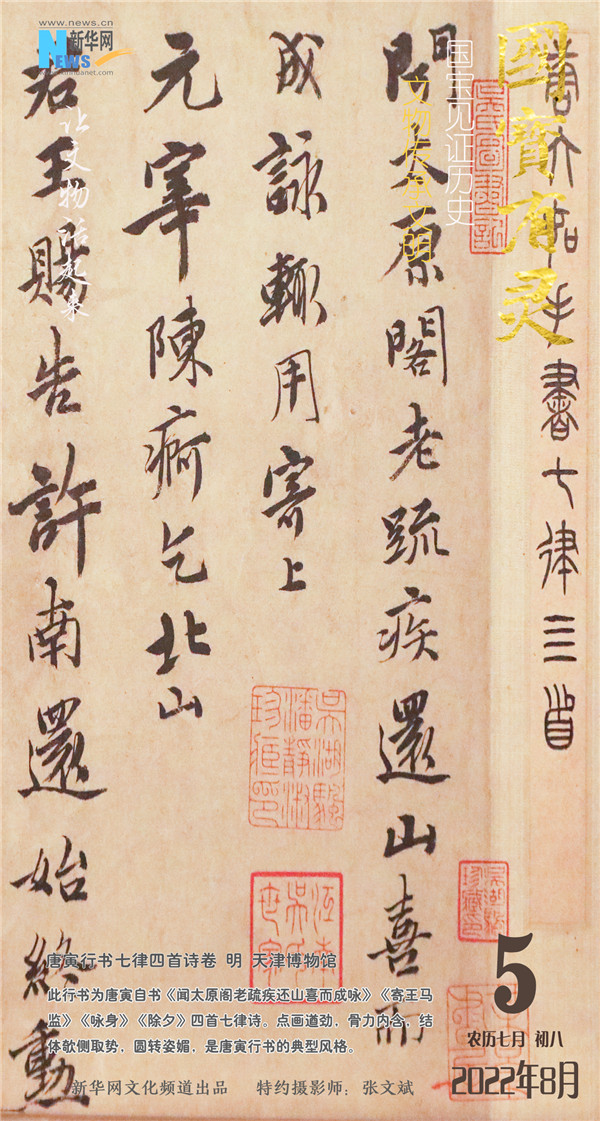 www.news.cn
新华网
NEWS
www.xinhuanet.com
國寶有灵
国宝见证历史
文物传承文明
让文物活起来
唐六如手書七律三首
聞太原閣老疏疾還山喜而
成詠輙用寄上
元宰陳痾乞北山
若王賜告許南還始終勳
吳湖颿潘靜淑珍藏印
江南吳氏世家
吳湖颿珍藏印
唐寅行书七律四首诗卷 明 天津博物馆
此行书为唐寅自书《闻太原阁老疏疾还山喜而成咏》《寄王马
监》《咏身》《除夕》四首七律诗。点画遒劲，骨力内含，结
体欹侧取势，圆转姿媚，是唐寅行书的典型风格。
新华网文化频道出品 特约摄影师：张文斌
5
农历七月 初八
2022年8月